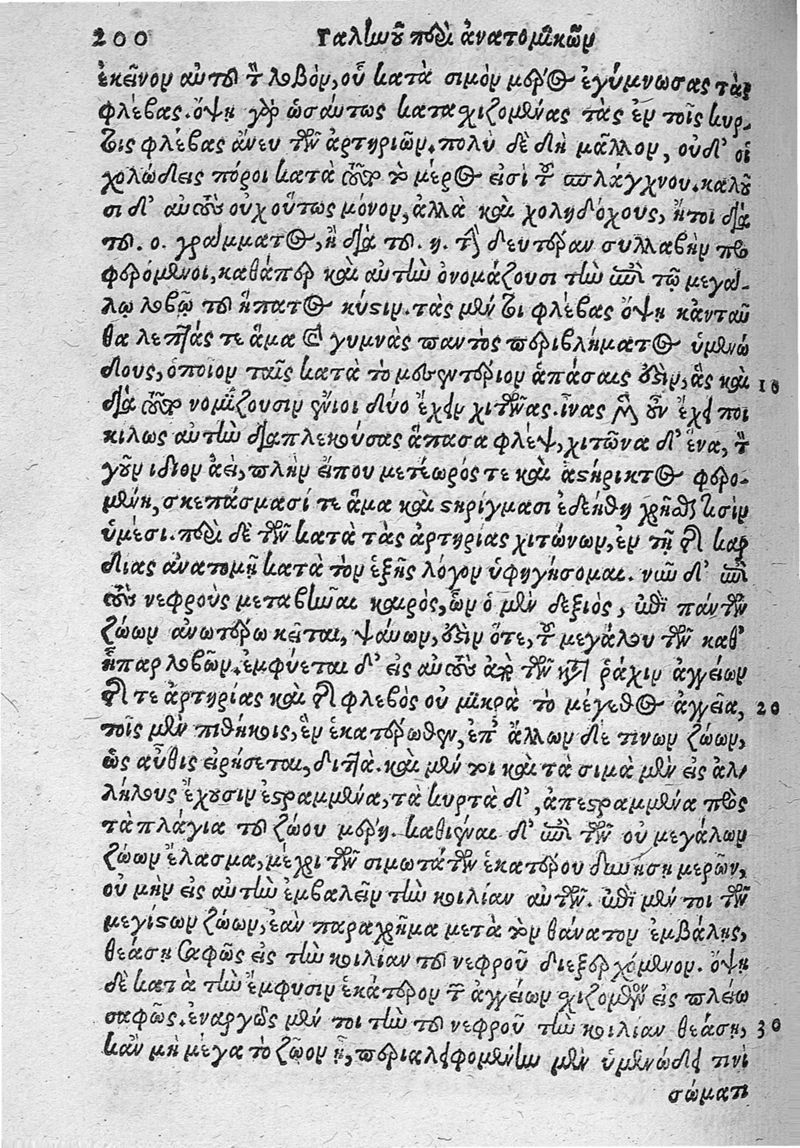 200 Γαλίωοῦ περὶ ἀνατομικῶν
ἐκεῖνον αὐτοῦ τὸν λοβὸν, οὗ κατὰ σιμὸν μέρος ἐγύμνωσας τὰς
φλέβας. ὄψῃ γὰρ ὡσαύτως κατασχιζομένας τὰς ἐν τοῖς κυρ-
τοῖς φλέβας ἄνευ τῶν ἀρτηριῶν. πολὺ δὲ δὴ μᾶλλον, οὐδ' οἱ
χολώδεις πόροι κατὰ τοῦτο τὸ μέρος εἰσὶ τοῦ σπλάγχνου. καλοῦ
σι δ' αὐτοὺς οὐχ οὕτως μόνον, ἀλλὰ καὶ χοληδόχους, ἤτοι διὰ
τοῦ. ο. γράμματος, ἢ διὰ τοῦ. η. τὴν δευτέραν συλλαβὴν προ
φερόμενοι, καθάπερ καὶ αὐτὴν ὀνομάζουσι τὴν ἐπὶ τῷ μεγά-
λῳ λοβῷ τοῦ ἥπατος κύστιν. τὰς μέν τοι φλέβας ὄψῃ κἀνταῦ
θα λεπτάς τε ἅμα καὶ γυμνὰς παντὸς περιβλήματος ὑμενώ
δους, ὁποῖον ταῖς κατὰ τὸ μεσεντέριον ἁπάσαις ἐστὶν, ἃς καὶ 10
διὰ τοῦτο νομίζουσιν ἔνιοι δύο ἔχειν χιτῶνας. ἶνας μὲν οὖν ἔχει ποι
κίλως αὐτὴν διαπλεκούσας ἅπασα φλὲψ, χιτῶνα δ' ἕνα, τὸν
γοῦν ἴδιον ἀεὶ, πλὴν εἴπου μετέωρός τε καὶ ἀστήρικτος φερο-
μένη, σκεπάσμασί τε ἅμα καὶ στηρίγμασι ἐδεήθη χρῆσθαι τισὶν
ὑμέσι. περὶ δὲ τῶν κατὰ τὰς ἀρτηρίας χιτώνων, ἐν τῇ τῆς καρ
δίας ἀνατομῇ κατὰ τὸν ἑξῆς λόγον ὑφηγήσομαι. νῦν δ' ἐπὶ
τοὺς νεφροὺς μεταβῆναι καιρὸς, ὧν ὁ μὲν δεξιὸς, ἐπὶ πάντων
ζώων ἀνωτέρω κεῖται, ψαύων, ἔστιν ὅτε, τοῦ μεγάλου τῶν καθ'
ἧπαρ λοβῶν. ἐμφύεται δ' εἰς αὐτοὺς ἀπὸ τῶν κατὰ ῥάχιν ἀγγείων
τῆς τε ἀρτηρίας καὶ τῆς φλεβὸς οὐ μικρὰ τὸ μέγεθος ἀγγεῖα, 20
τοῖς μὲν πιθήκοις, ἓν ἑκατέρωθεν, ἐπ' ἄλλων δέ τινων ζώων,
ὡς αὖθις εἰρήσεται, διττὰ. καὶ μέν τοι καὶ τὰ σιμὰ μὲν εἰς ἀλ-
λήλους ἔχουσιν ἐστραμμένα, τὰ κυρτὰ δ', ἀπεστραμμένα πρὸς
τὰ πλάγια τοῦ ζώου μέρη. καθιέναι δ' ἐπὶ τῶν οὐ μεγάλων
ζώων ἔλασμα, μέχρι τῶν σιμωτάτων ἑκατέρου δυνήσῃ μερῶν,
οὐ μὴν εἰς αὐτὴν ἐμβαλεῖν τὴν κοιλίαν αὐτῶν. ἐπὶ μέν τοι τῶν
μεγίστων ζώων, ἐὰν παραχρῆμα μετὰ τὸν θάνατον ἐμβάλῃς,
θεάσῃ σαφῶς εἰς τὴν κοιλίαν τοῦ νεφροῦ διεξερχόμενον. ὄψῃ
δὲ κατὰ τὴν ἔμφυσιν ἑκάτερον τῶν ἀγγείων σχιζομένων εἰς πλείω
σαφῶς. ἐναργῶς μέν τοι τὴν τοῦ νεφροῦ τὴν κοιλίαν θεάσῃ, 30
κἂν μὴ μέγα τὸ ζῷον ᾖ, περιαλειφομένην μὲν ὑμενώδει τινὶ
σώματι